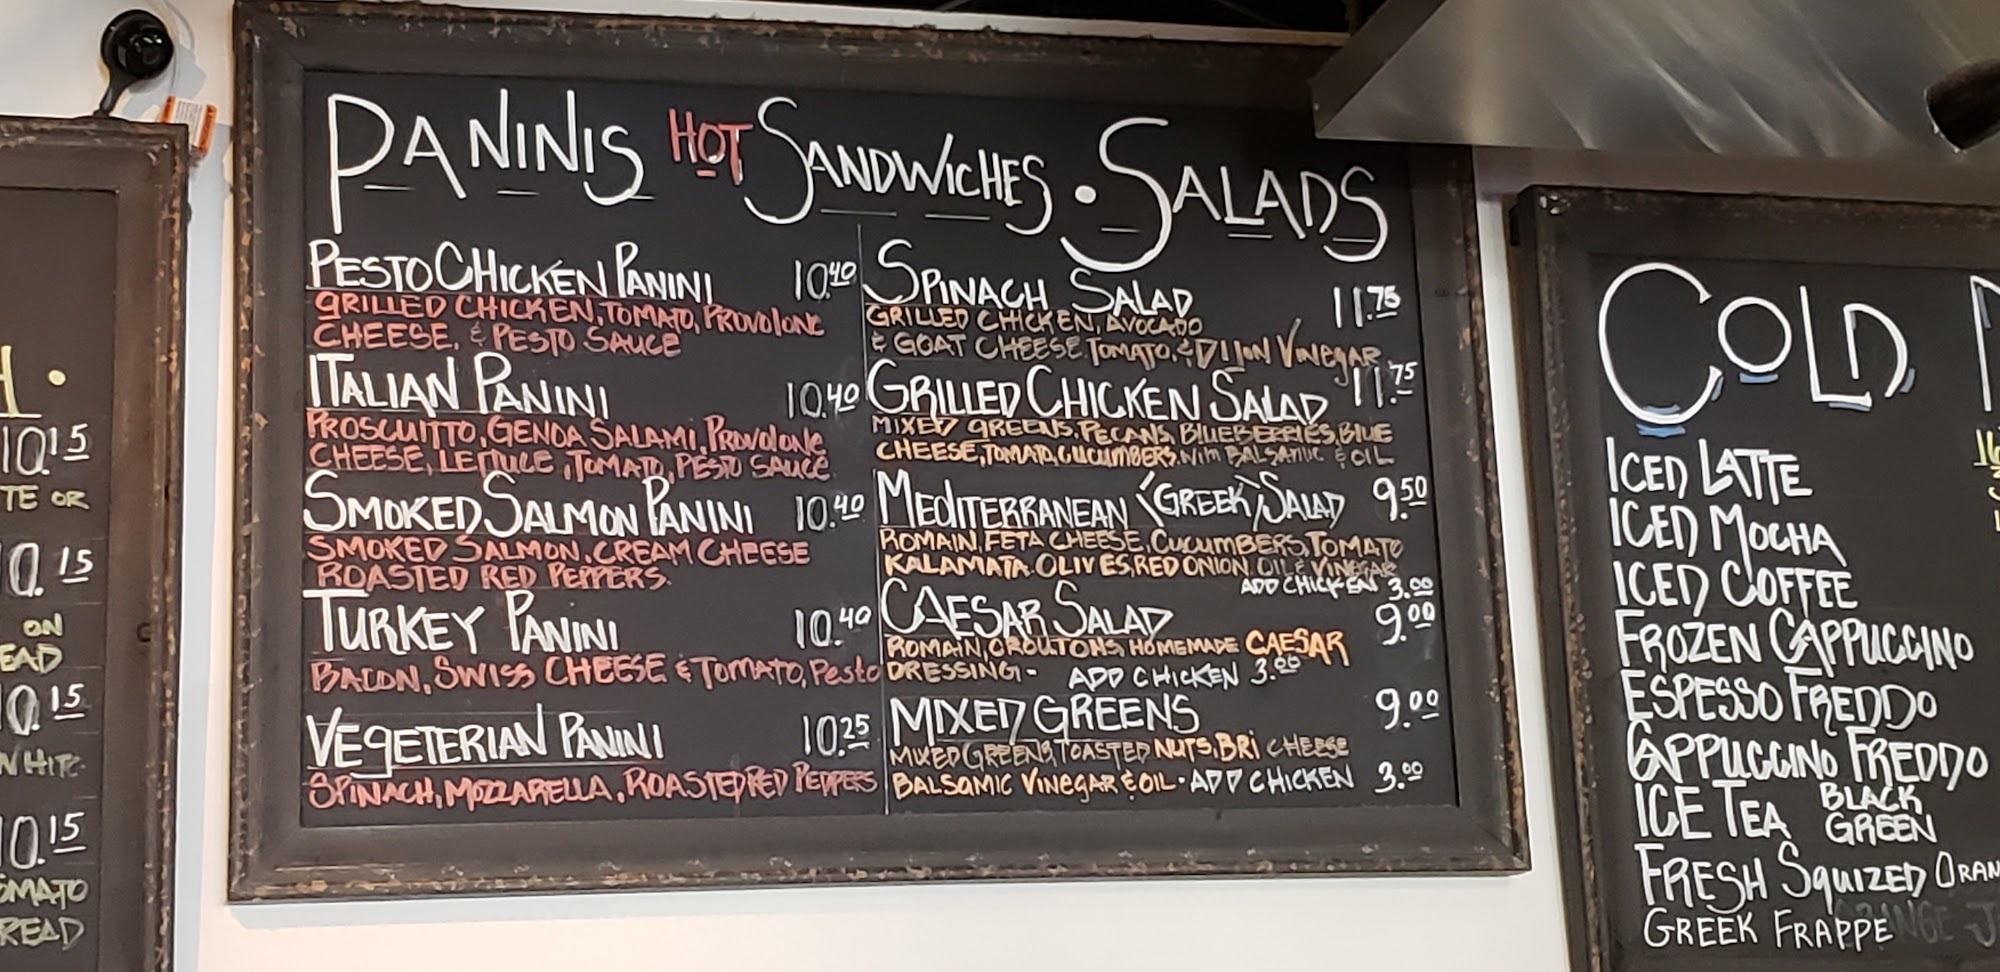 H.
10.15
TE OR
0.15
ON
EAD
0.15
WHITE
10.15
OMATO
READ
PANINIS HOT SANDWICHES • SALADS
PESTO CHICKEN PANINI 10.40
GRILLED CHICKEN, TOMATO, PROVOLONE
CHEESE, & PESTO SAUCE
ITALIAN PANINI 10.40
PROSCUITTO, GENOA SALAMI, PROVOLONE
CHEESE, LETTUCE, TOMATO, PESTO SAUCE
SMOKED SALMON PANINI 10.40
SMOKED SALMON, CREAM CHEESE
ROASTED RED PEPPERS.
TURKEY PANINI 10.40
BACON, SWISS CHEESE & TOMATO, Pesto
VEGETERIAN PANINI 10.25
SPINACH, MOZZARELLA, ROASTED RED PEPPERS
SPINACH SALAD 11.75
GRILLED CHICKEN, AVOCADO
& GOAT CHEESE TOMATO, & DIJON VINEGAR
GRILLED CHICKEN SALAD 11.75
MIXED GREENS, PECANS, BLUEBERRIES, BLUE
CHEESE, TOMATO, CUCUMBERS, With BALSAMIC & OIL
MEDITERRANEAN (GREEK) SALAD 9.50
ROMAIN, FETA CHEESE, CUCUMBERS, TOMATO
KALAMATA OLIVES, RED ONION, OIL & VINEGAR
ADD CHICKEN 3.00
CAESAR SALAD 9.00
ROMAIN, CROUTONS, HOMEMADE CAESAR
DRESSING - ADD CHICKEN 3.00
MIXED GREENS 9.00
MIXED GREENS, TOASTED NUTS, BRI CHEESE
BALSAMIC VINEGAR & OIL • ADD CHICKEN 3.00
COLD
16
ICED LATTE
ICED MOCHA
ICED COFFEE
FROZEN CAPPUCCINO
ESPESSO FREDDO
CAPPUCCINO FREDDO
ICE TEA BLACK
GREEN
FRESH SQUIZED ORAN
GREEK FRAPPE